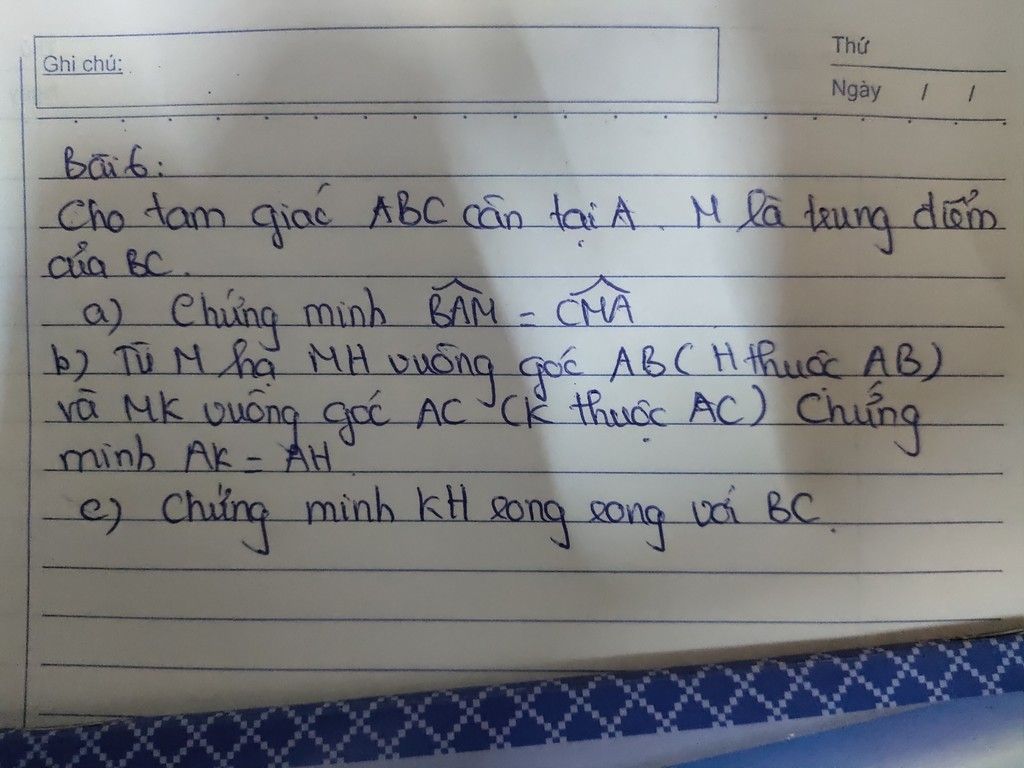 Ghi chú:
Thứ
Ngày / /
Bài 6:
Cho tam giác ABC cân tại A. M là trung điểm
của BC.
a) Chứng minh BAM = CMA
b) Từ M hạ MH vuông góc AB (H thuộc AB)
và MK vuông góc AC (K thuộc AC) Chứng
minh AK = AH
c) Chứng minh KH song song với BC.